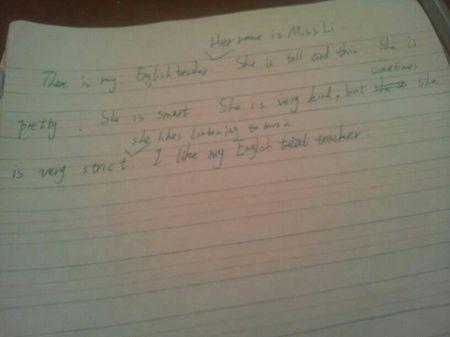 Her name is Miss Li
There is my English teacher. She is tall and thin She is
pretty. She is smart She is very kind, but sometimes she
she likes listening to music
is very strict. I like my English teacher.